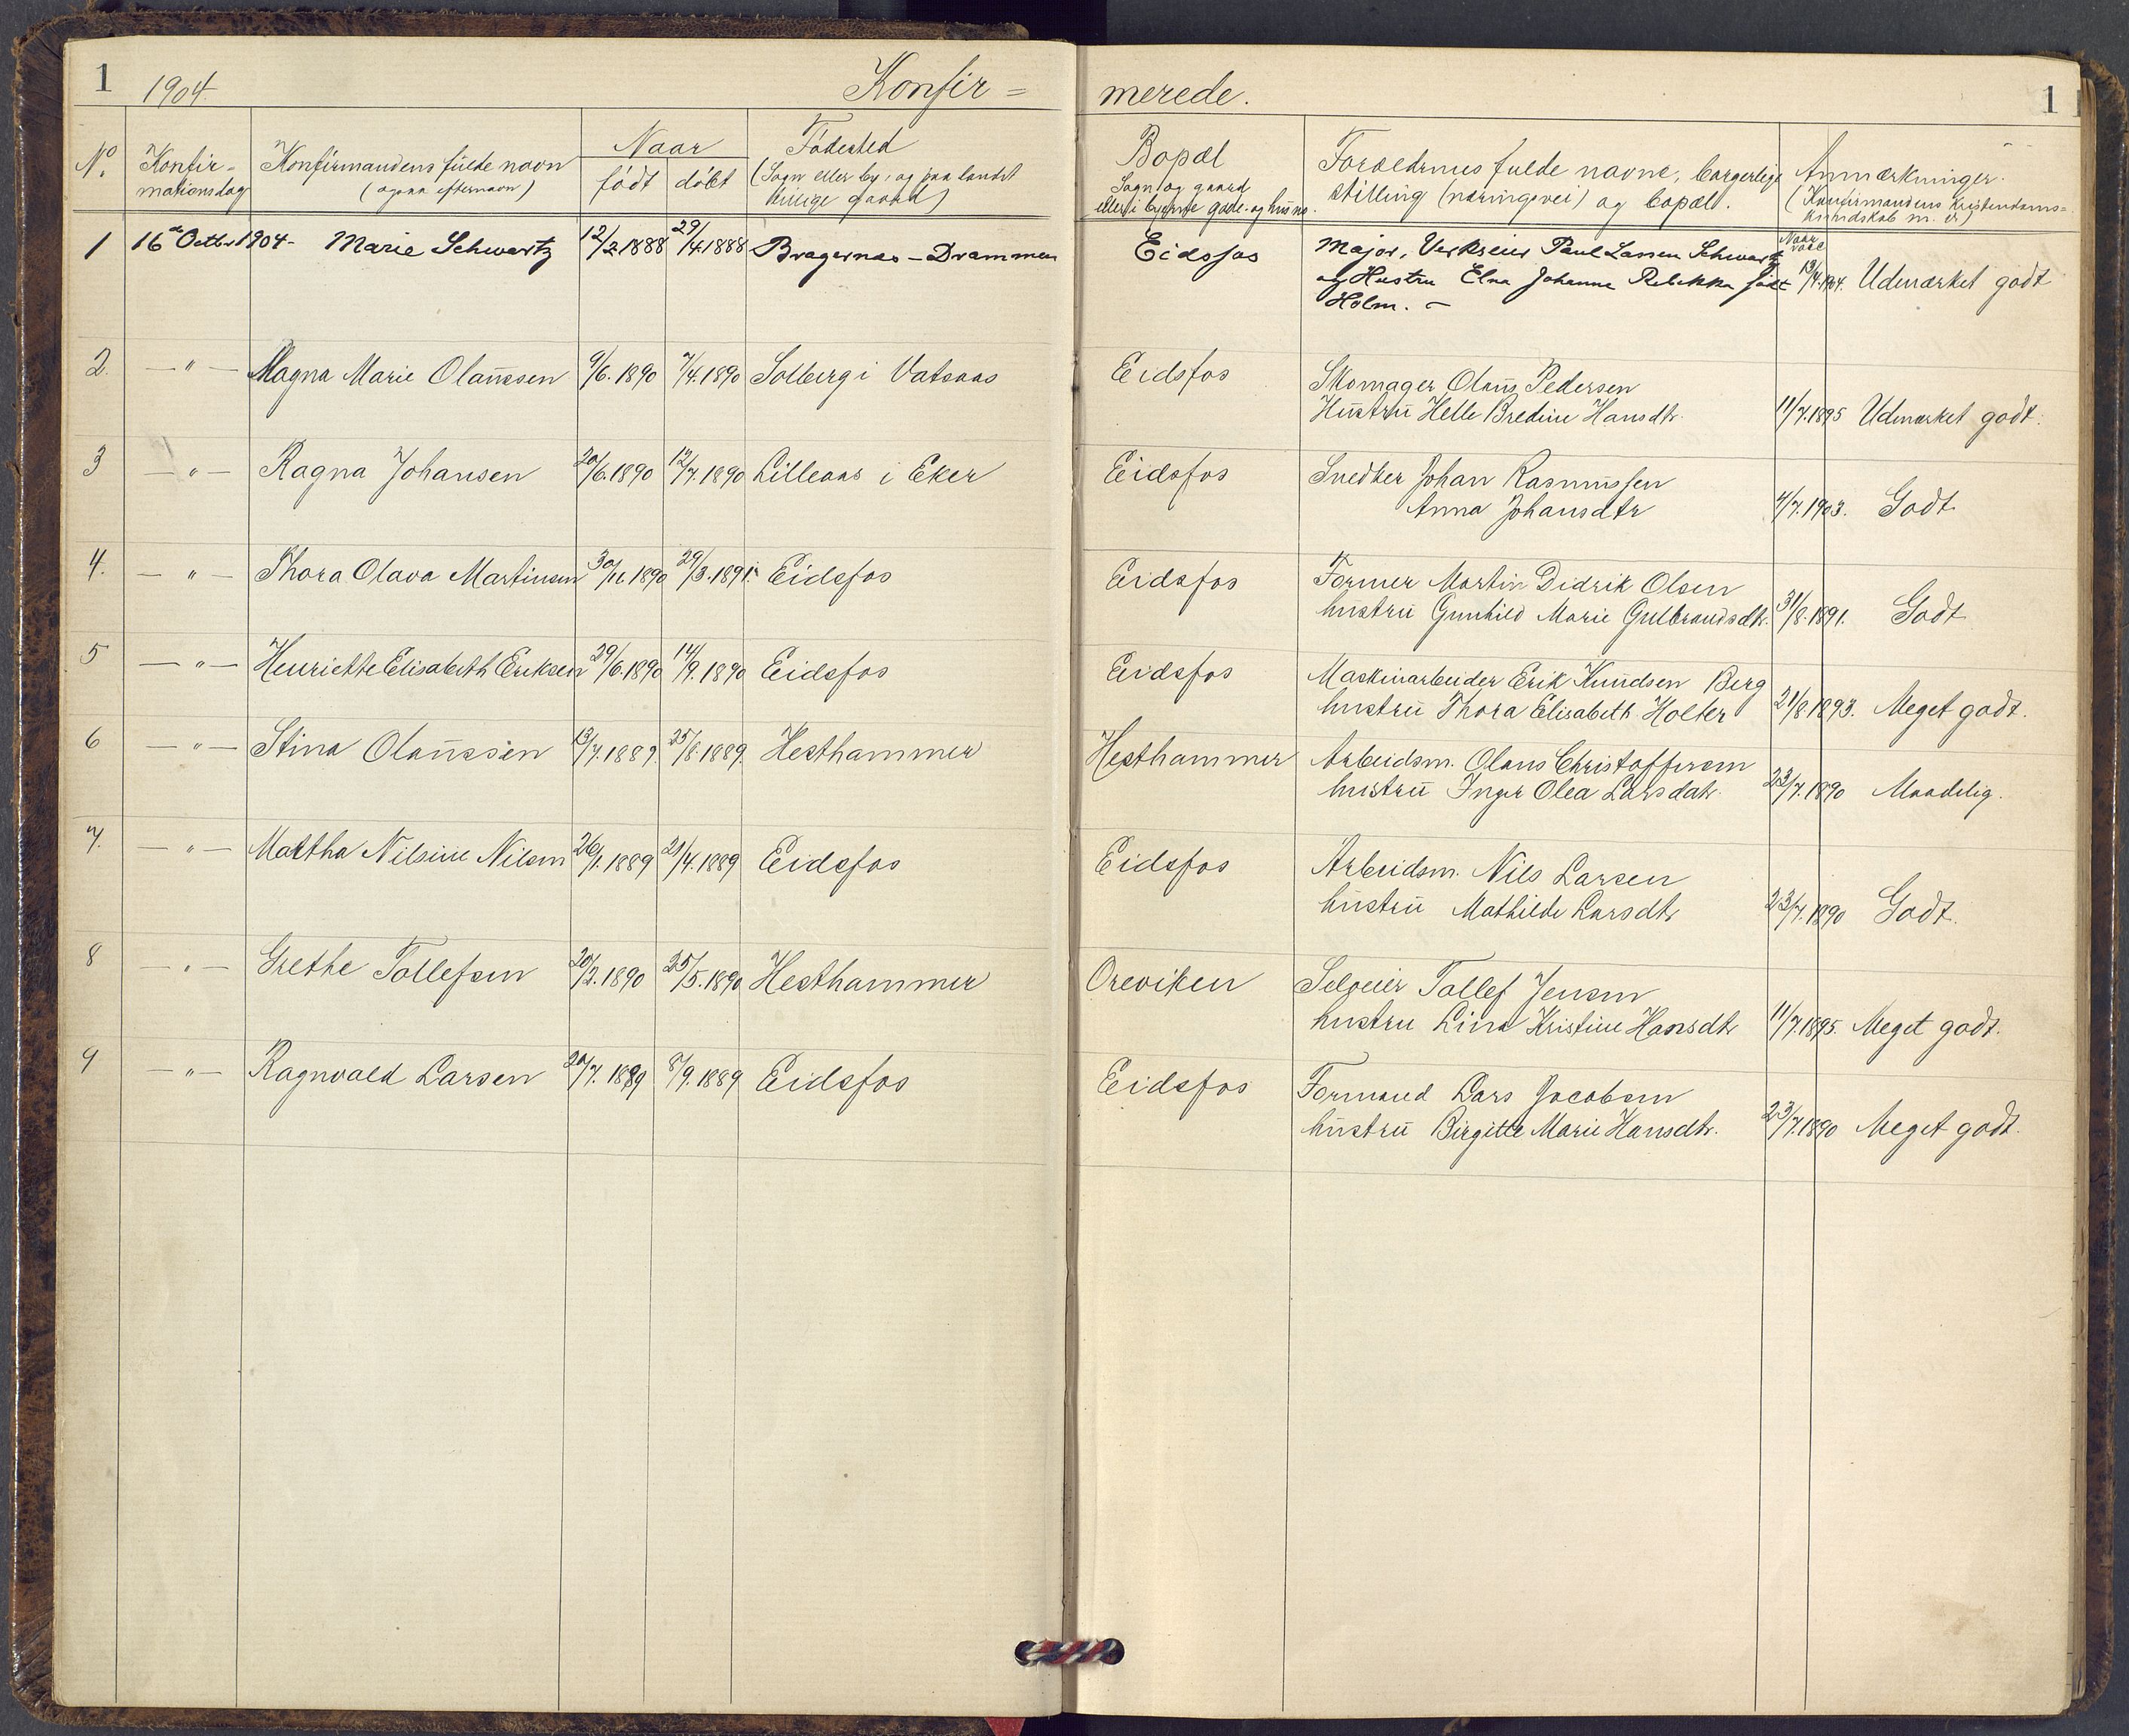 1 1904. Konfir= merede. 1
No. Konfir-
mationsdag
Konfirmandens fulde navn
(ogsaa efternavn)
Naar
født døbt
Fødested
(Sogn eller by, og paa landet
tillige gaard)
Bopæl
Sogn og gaard
eller i byerne gade- og hus no.
Foroeldrenes fulde navne, borgerlige
stilling (næringsvei) og bopæl.
Anmærkninger.
(Konfirmandens kristendoms=
kundskab m. v.)
Naar
vacc
1 16de Octbr 1904- Marie Schwartz 12/2 1888 29/4.1888 Bragernæs - Drammen
Eidsfos Major, Verkseier Paul Lassen Schwartz
og Hustru Elna Johanne Rebekka født 13/4.1904. Udmærket godt
Holm. -
2. - " - Magna Marie Olaussen 9/6.1890 7/4.1890 Solberg i Vatsaas
Eidsfos Skomager Olaus Pedersen
Hustru Helle Bredine Hansdtr. 11/7.1895 Udmærket godt.
3 - " - Ragna Johansen 20/6.1890 12/7.1890 Lilleaas i Eker
Eidsfos Snedker Johan Rasmussen
Anna Johansdtr 4/7.1903. Godt.
4. - " - Thora Olava Martinsen 30/11.1890 29/3.1891. Eidsfos
Eidsfos Former Martin Didrik Olsen
hustru Gunhild Marie Gulbrandsdtr. 31/8.1891. Godt
5 - " - Henriette Elisabeth Eriksen 29/6.1890 14/9.1890 Eidsfos
Eidsfos Maskinarbeider Erik Knudsen Berg
hustru Thora Elisabeth Holter 21/8.1893. Meget godt.
6 - " - Stina Olaussen 13/7.1889. 25/8.1889. Hesthammer
Hesthammer Arbeidsm. Olaus Christoffersen
hustru Inger Olea Larsdatr. 23/7.1890 Maadelig.
7. - " - Martha Nilsine Nilsen 26/1.1889 21/4.1889 Eidsfos
Eidsfos Arbeidsm. Nils Larsen
hustru Mathilde Larsdtr 23/7.1890 Godt.
8 - " - Grethe Tollefsen 20/2.1890 25/5.1890 Hesthammer
Oreviken Selveier Tollef Jensen
hustru Lina Kristine Hansdtr 11/7.1895. Meget godt.
9 - " - Ragnvald Larsen 20/7.1889 8/9.1889. Eidsfos
Eidsfos Formand Lars Jacobsen
hustru Birgitte Marie Hansdtr. 23/7.1890 Meget godt.